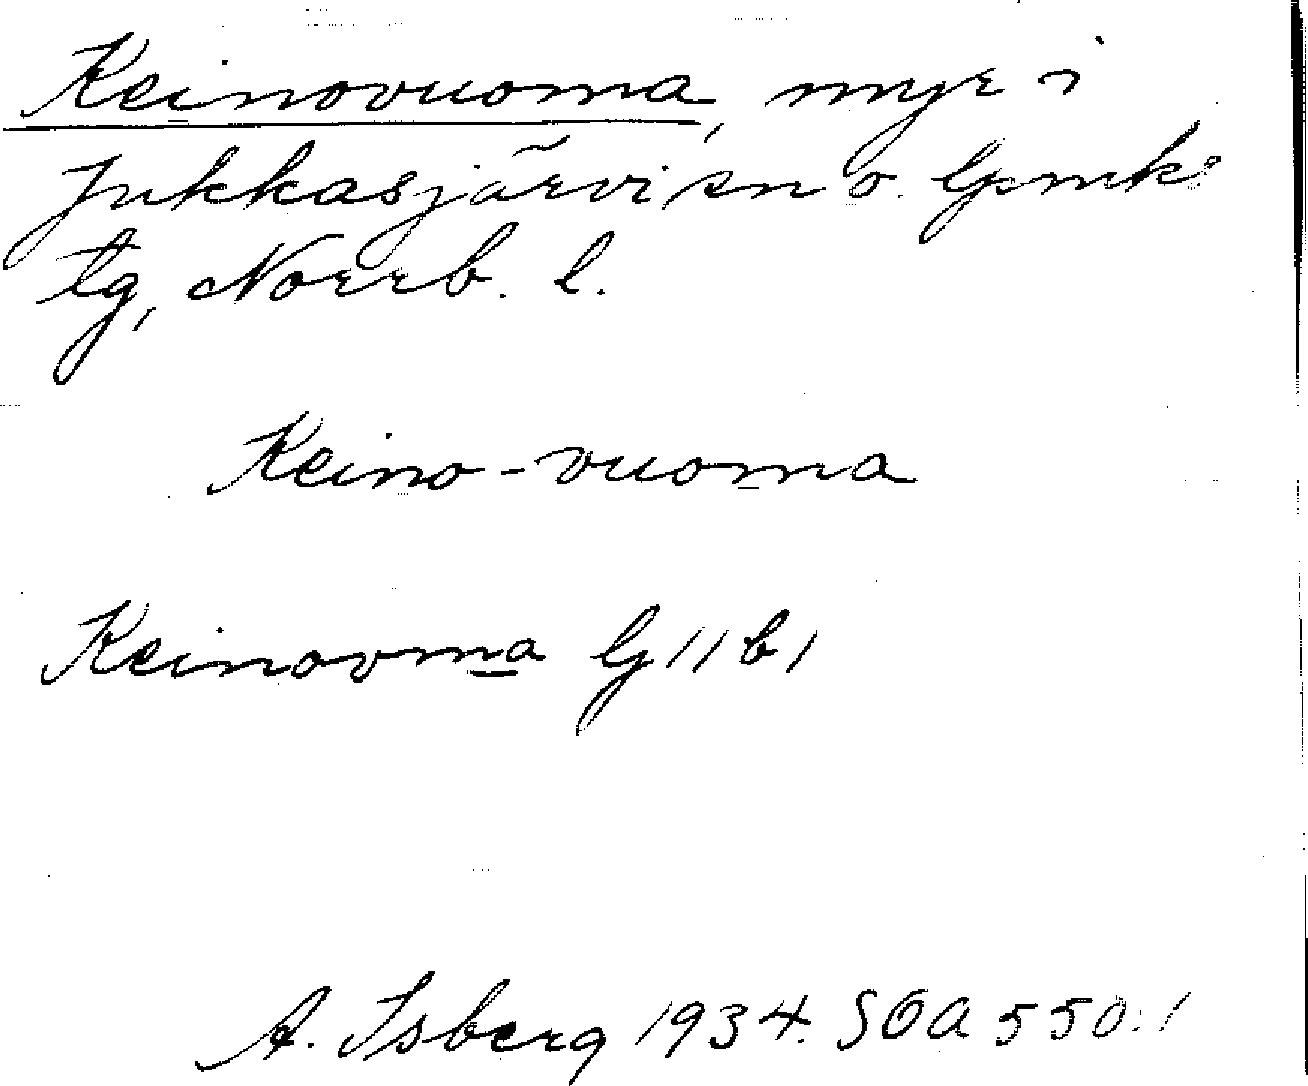 Keinovuoma, myr i
Jukkasjärvi sn o. lpmks
tg, Norrb. l.
Keino-vuoma
Keinovma lj 11 b 1
A. Isberg 1934. SOA 550:1